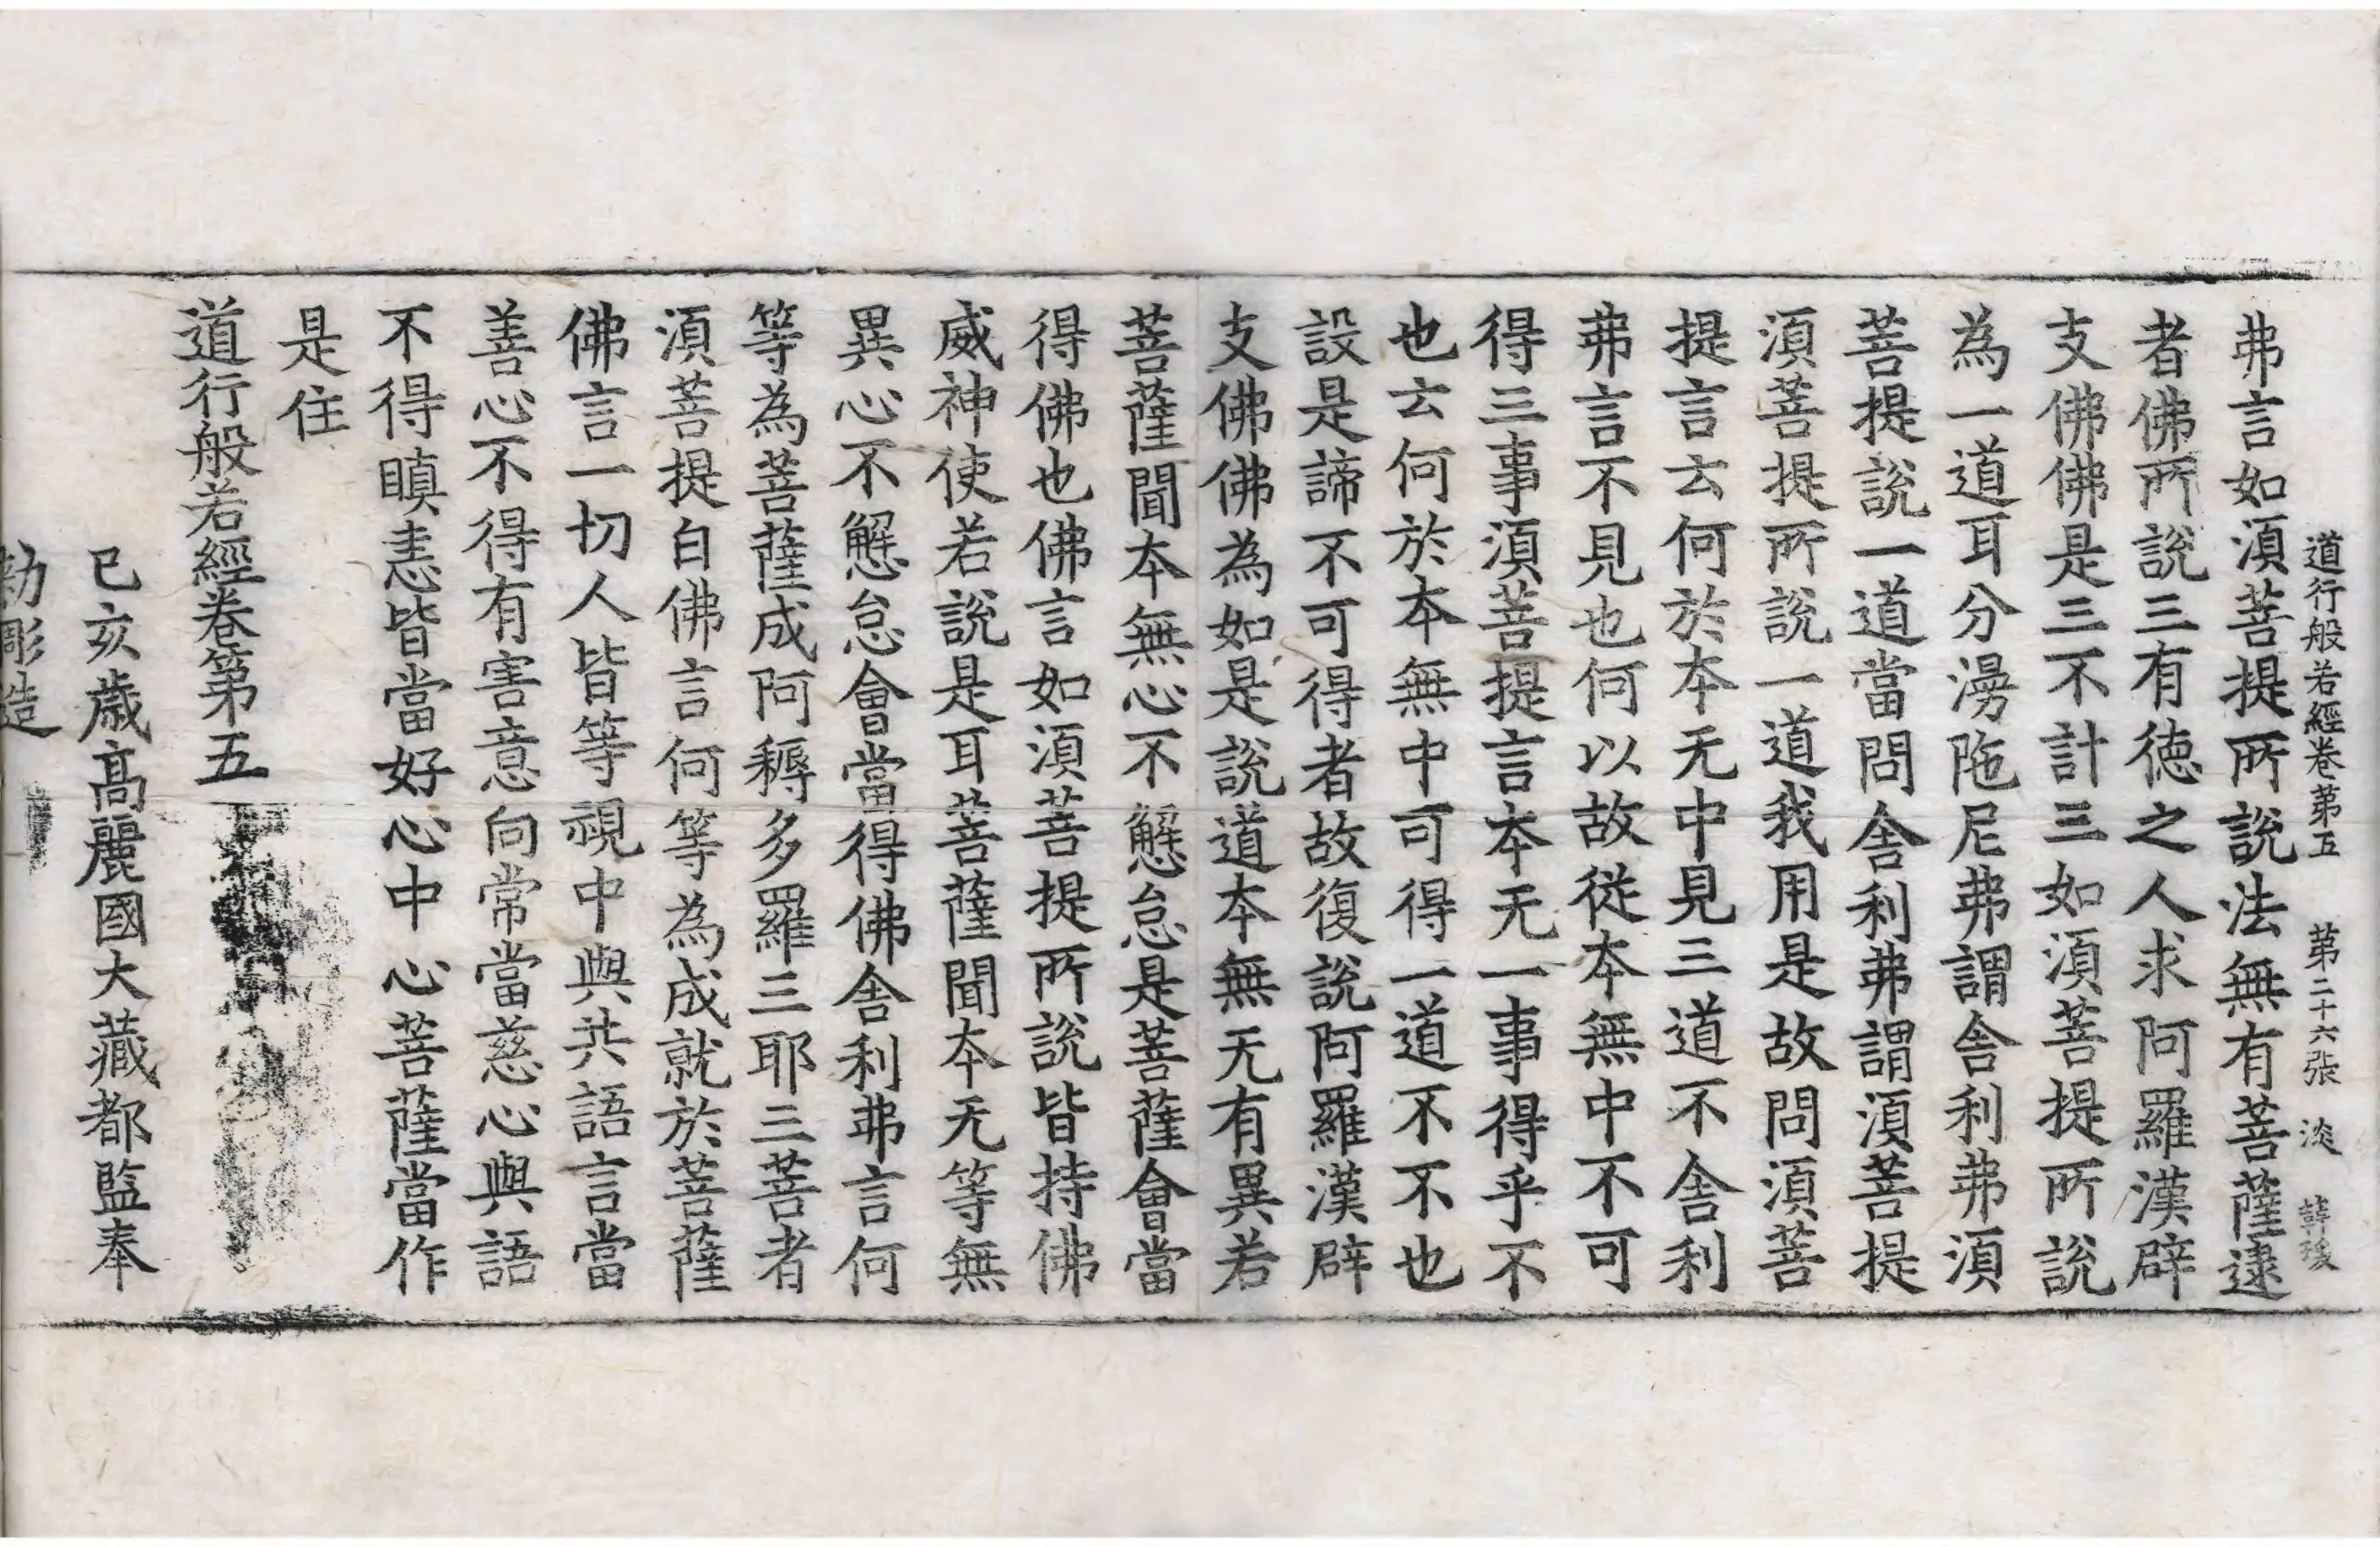 道行般若經卷第五 第二十六張 淡
弗言如湏菩提所說法無有菩薩逮
者佛所說三有德之人求阿羅漢辟
支佛佛是三不計三如湏菩提所說
為一道耳分漫陁尼弗謂舍利弗湏
菩提說一道當問舍利弗謂湏菩提
湏菩提所說一道我用是故問湏菩
提言云何於本无中見三道不舍利
弗言不見也何以故從本無中不可
得三事湏菩提言本无一事得乎不
也云何於本無中可得一道不不也
設是諦不可得者故復說阿羅漢辟
支佛佛為如是說道本無无有異若
菩薩聞本無心不懈怠是菩薩會當
得佛也佛言如湏菩提所說皆持佛
威神使若說是耳菩薩聞本无等無
異心不懈怠會當得佛舍利弗言何
等為菩薩成阿耨多羅三耶三菩者
湏菩提白佛言何等為成就於菩薩
佛言一切人皆等視中與共語言當
善心不得有害意向常當慈心與語
不得瞋恚皆當好心中心菩薩當作
是住
道行般若經卷第五
己亥歲高麗國大藏都監奉
勅彫造